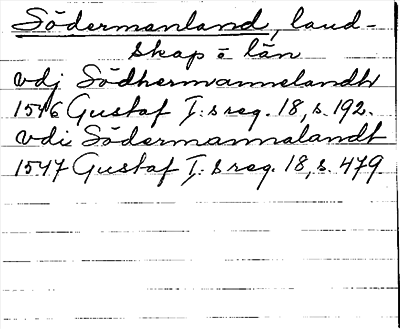 Södermanland, land-
skap o län
vdj Södhermannelandh
1546 Gustaf I:s reg. 18, s. 192.
vdi Södermannalandt
1547 Gustaf I:s reg. 18, s. 479